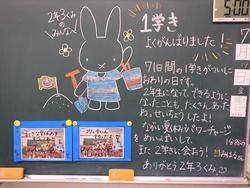 2年3くみの
みんなへ
1学き
よくがんばりました!
71日間の1学きがついに
おわりの日です。
2年生になって、できるように
なったことも たくさん、あった
ね。せいちょうしたね!
ながい夏休みでパワーチャージ
をめいっぱいして、
また、2学きに会おう!
ありがとう 2年3くみ
7
月
17
日
500